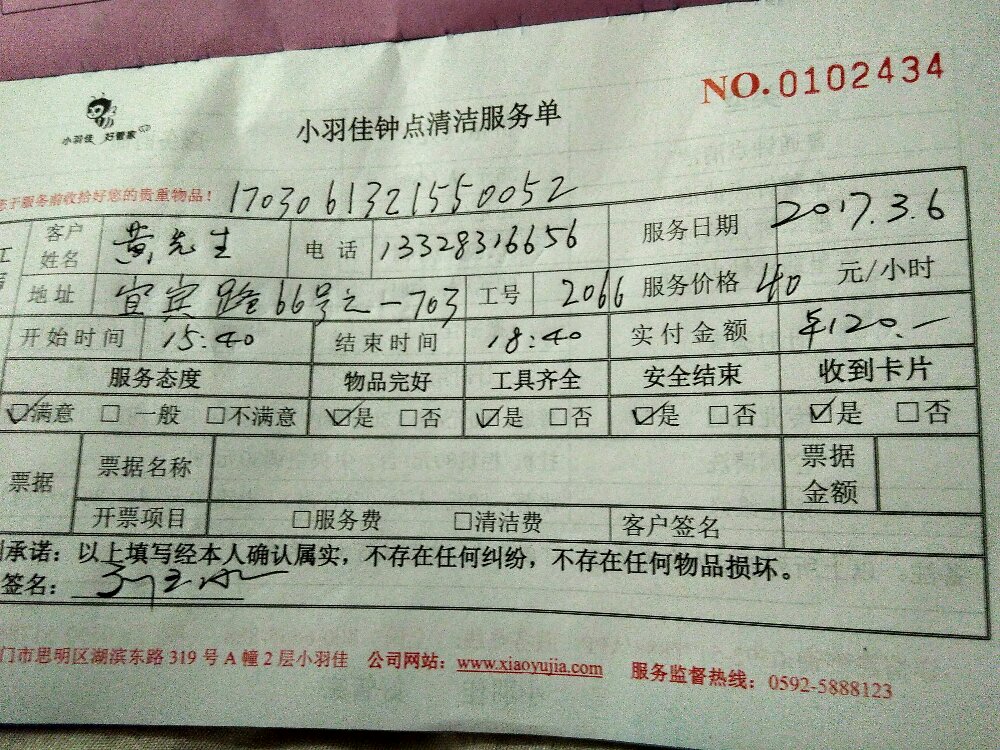 小羽佳 好管家
小羽佳钟点清洁服务单
NO.0102434
于服务前收拾好您的贵重物品！ 1703061321550052
客户姓名 黄先生 电话 13328316656 服务日期 2017.3.6
地址 宜宾路66号之一703 工号 2066 服务价格 40 元/小时
开始时间 15:40 结束时间 18:40 实付金额 ¥120.一
服务态度 物品完好 工具齐全 安全结束 收到卡片
☑满意 □一般 □不满意 ☑是 □否 ☑是 □否 ☑是 □否 ☑是 □否
票据 票据名称 票据金额
开票项目 □服务费 □清洁费 客户签名
承诺：以上填写经本人确认属实，不存在任何纠纷，不存在任何物品损坏。
签名：
门市思明区湖滨东路 319 号 A 幢 2 层小羽佳 公司网站：www.xiaoyujia.com 服务监督热线：0592-5888123